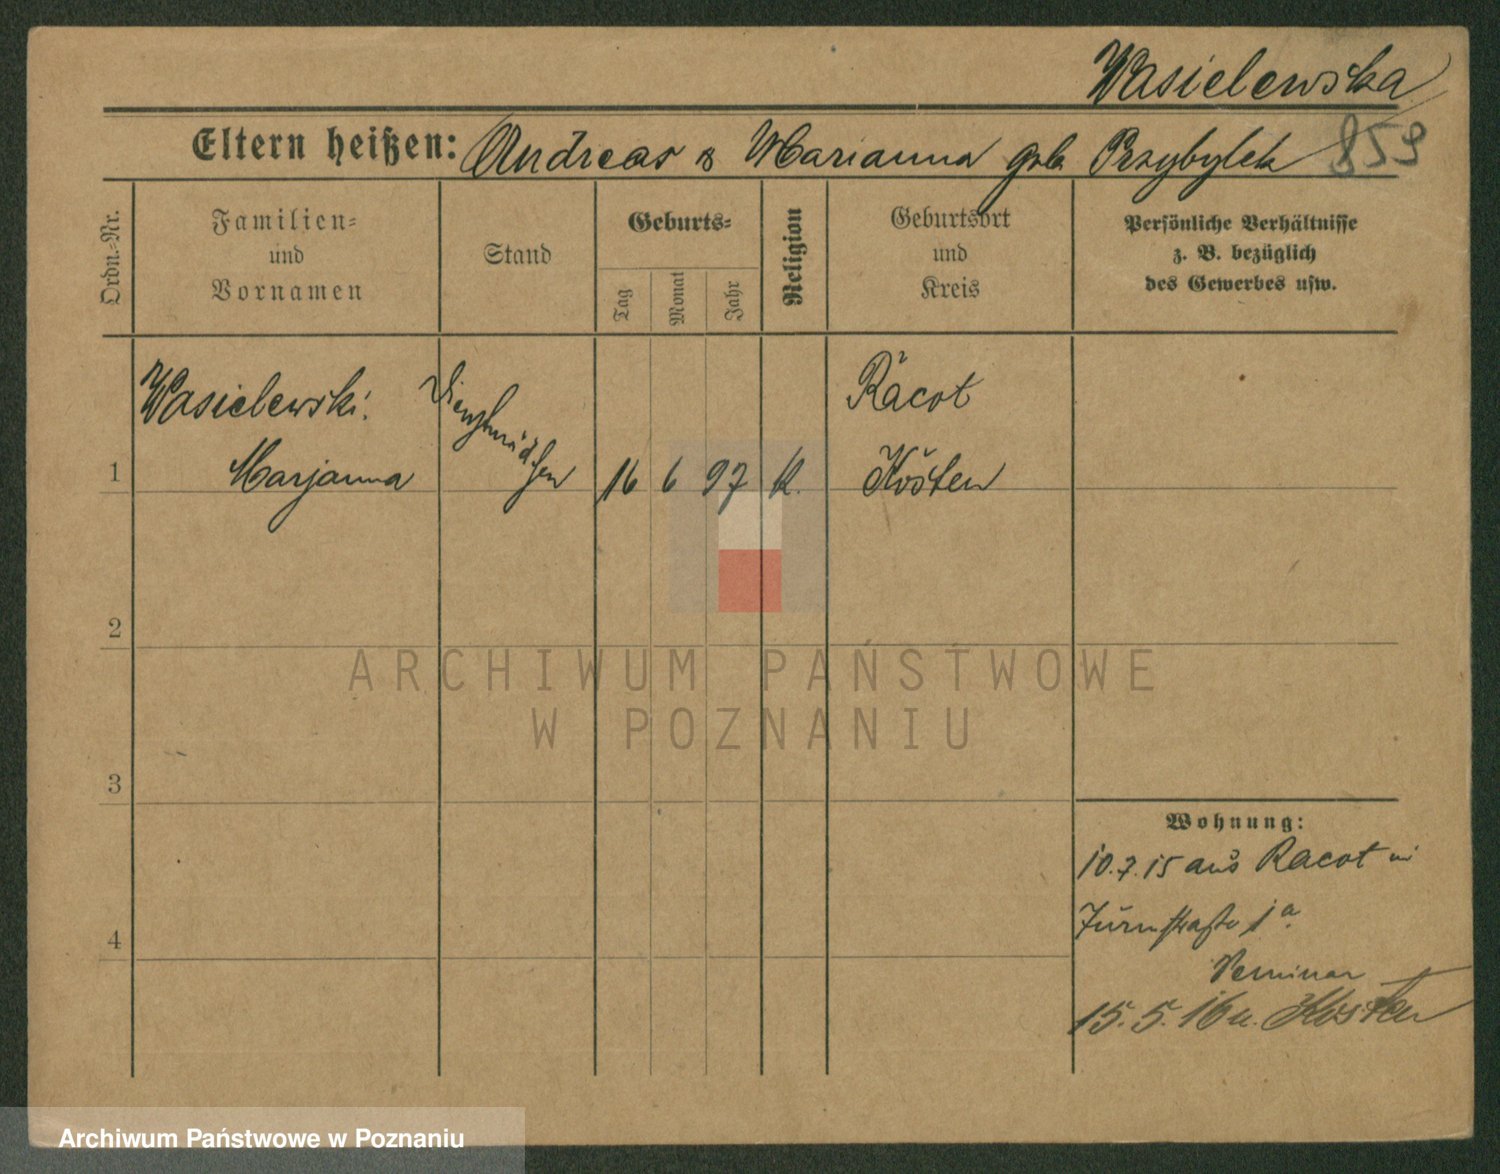 Wasielewska
Eltern heißen: Andreas & Marianna geb. Przybylek 859
Ordn.=Nr.
Familien=
und
Vornamen
Stand
Geburts=
Tag
Monat
Jahr
Religion
Geburtsort
und
Kreis
Persönliche Verhältnisse
z. B. bezüglich
des Gewerbes usw.
Wasielewski.
Marjanna
Dienstmädchen
1
16 6 97 K.
Racot
Kosten
2
3
4
ARCHIWUM PAŃSTWOWE
W POZNANIU
Wohnung:
10.7.15 aus Racot
Turmstraße 1a.
Seminar
15.5.16 n. Kosten
Archiwum Państwowe w Poznaniu